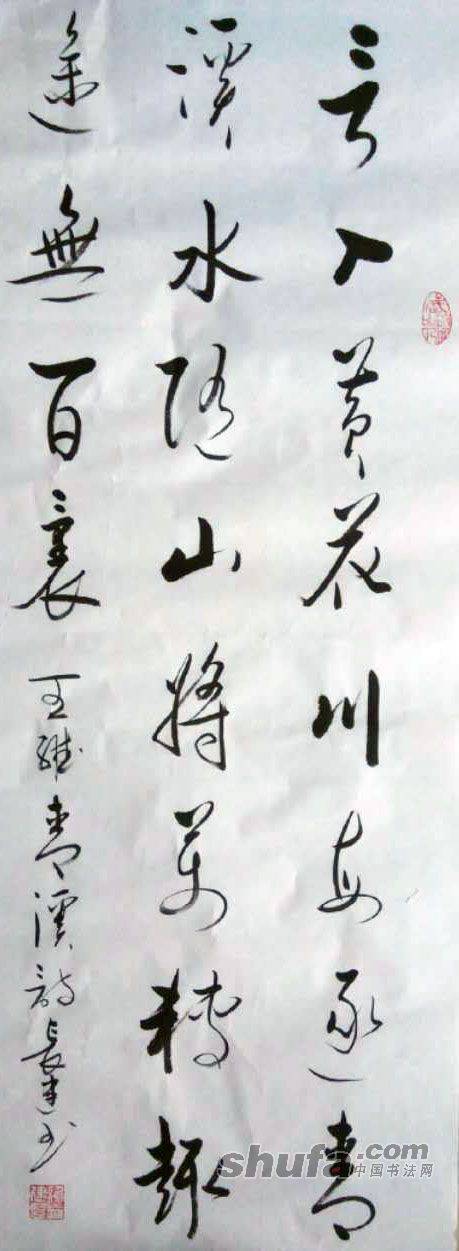 言入黄花川每逐青
溪水随山将万转趣
途無百里
王维青溪诗長建书
shufa.com
中国书法网